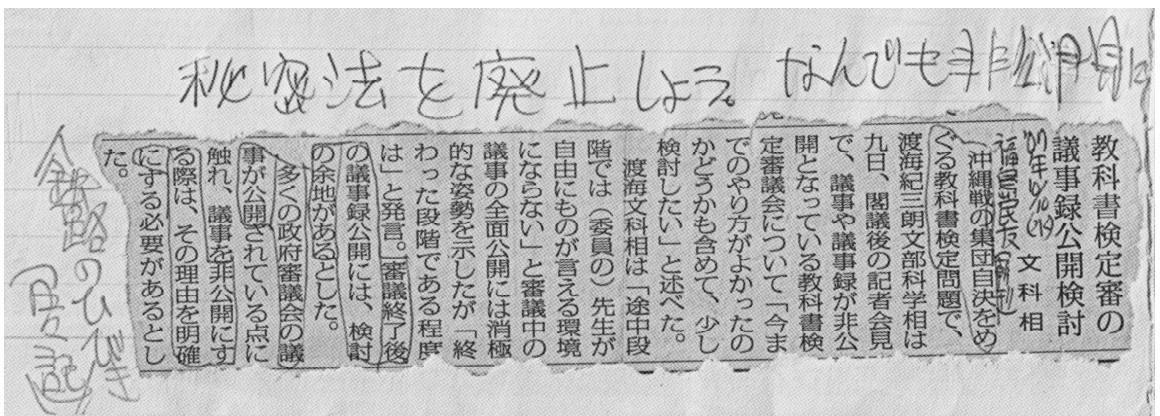 秘密法を廃止しよう。なんでも非公開
教科書検定審の
議事録公開検討
文科相
沖縄戦の集団自決をめ
ぐる教科書検定問題で、
渡海紀三朗文部科学相は
九日、閣議後の記者会見
で、議事や議事録が非公
開となっている教科書検
定審議会について「今ま
でのやり方がよかったの
かどうかも含めて、少し
検討したい」と述べた。
渡海文科相は「途中段
階では(委員の)先生が
自由にものが言える環境
にならない」と審議中の
議事の全面公開には消極
的な姿勢を示したが「終
わった段階である程度
は」と発言。審議終了後
の議事録公開には、検討
の余地があるとした。
多くの政府審議会の議
事が公開されている点に
触れ、議事を非公開にす
る際は、その理由を明確
にする必要があるとし
た。
のひびき